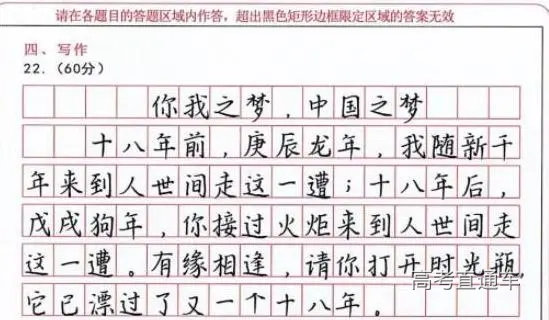 请在各题目的答题区域内作答，超出黑色矩形边框限定区域的答案无效
四、写作
22.（60分）
你我之梦，中国之梦
十八年前，庚辰龙年，我随新千
年来到人世间走这一遭；十八年后，
戊戌狗年，你接过火炬来到人世间走
这一遭。有缘相逢，请你打开时光瓶，
它已漂过了又一个十八年。
高考直通车